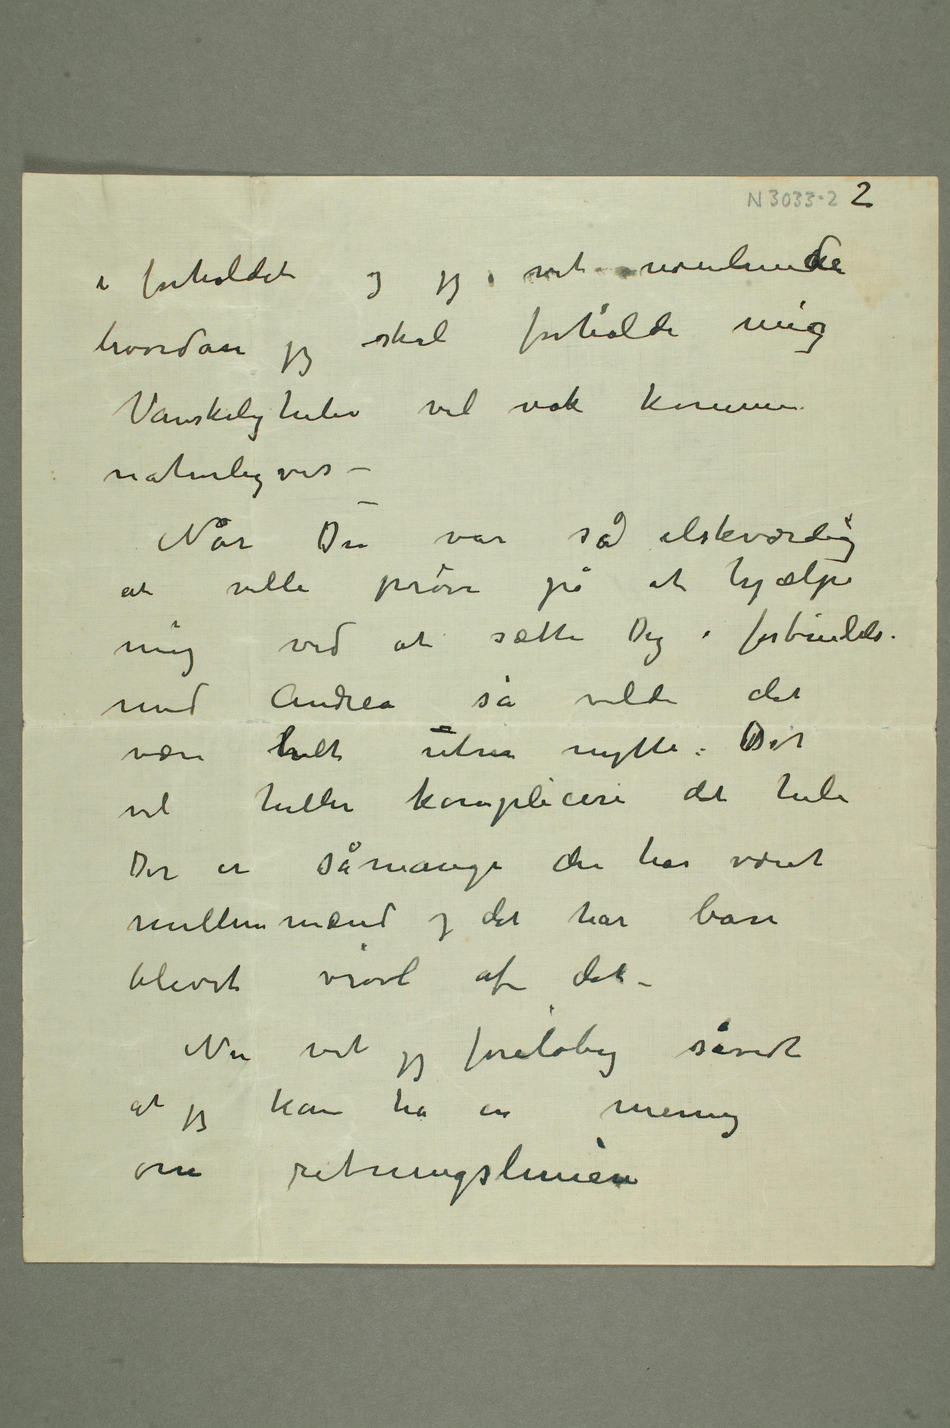 N 3033-2 2
i forholdet og jeg vet nogenlunde
hvordan jeg skal forholde mig
Vanskeligheder vil nok komme
naturligvis –
Når Du var så elskværdig
at ville prøve på at hjælpe
mig ved at sætte Dig i forbindelse
med Andrea så vilde det
være helt uten nytte. Det
vil heller komplicere det hele
Der er såmange der har været
mellemmænd og det har bare
blevet vrøvl af det –
Nu vet jeg foreløbig såvidt
at jeg kan ha en mening
om retningslinien